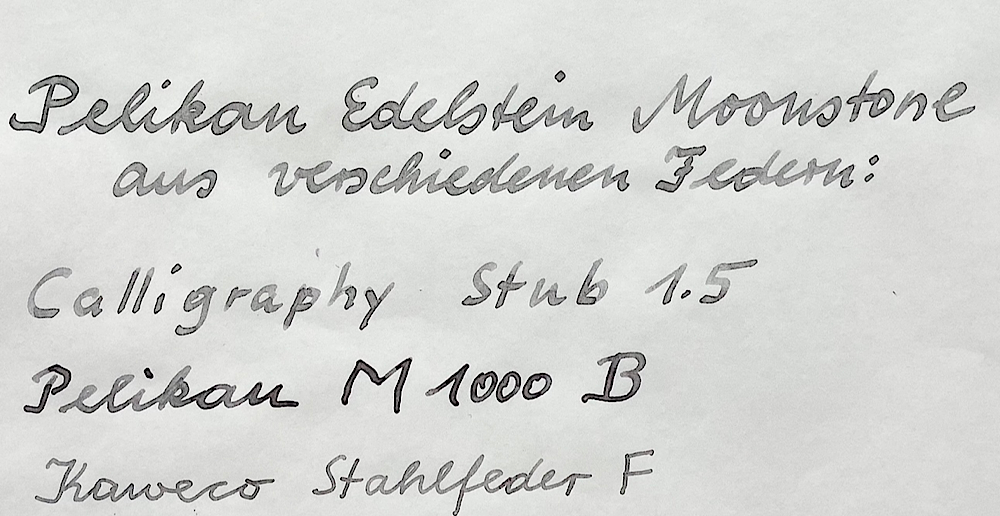 Pelikan Edelstein Moonstone
aus verschiedenen Federn:
Calligraphy Stub 1.5
Pelikan M 1000 B
Kaweco Stahlfeder F